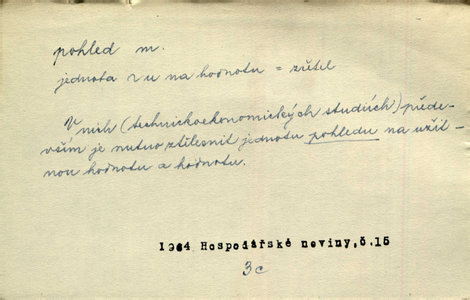 pohled m.
jednota v u na hodnotu = zřetel
V nich (technickoekonomických studiích) přede-
vším je nutno ztělesnit jednotu pohledu na užit-
nou hodnotu a hodnotu.
1964 Hospodářské noviny,č.15
3c